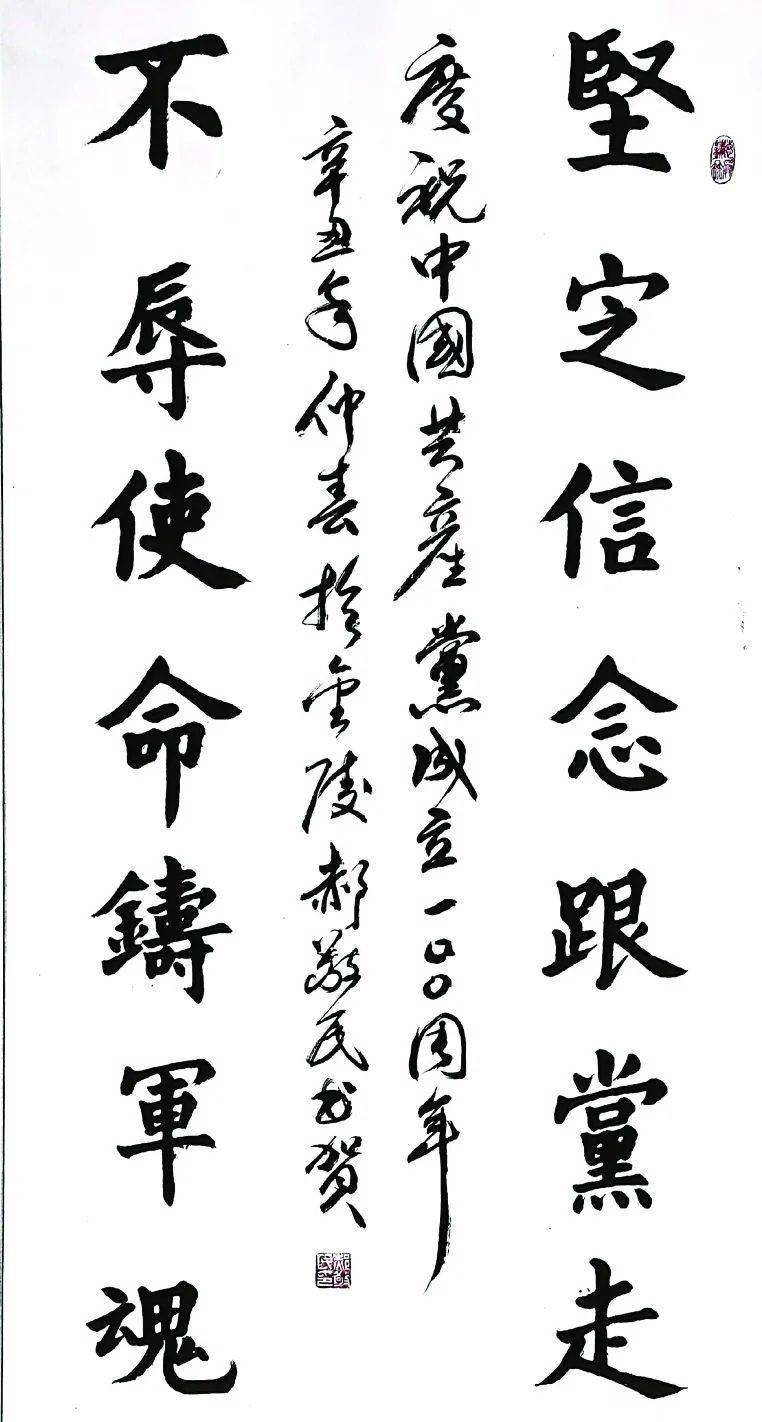 堅定信念跟黨走
慶祝中國共產黨成立一〇〇周年
辛丑年仲春於金陵郝敬民書賀
不辱使命鑄軍魂